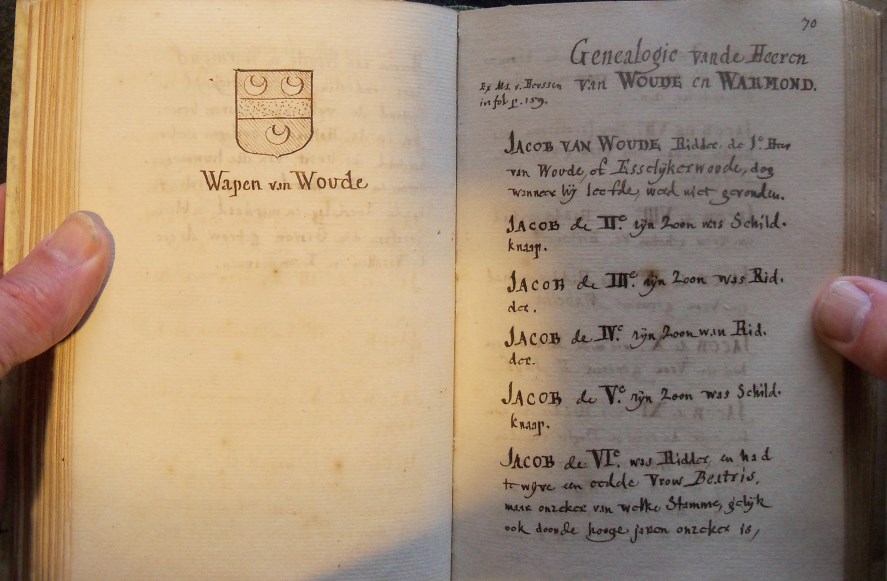 Wapen van Woude
70
Genealogie vande Heeren
van WOUDE en WARMOND.
Ex Ms. v. Heussen
in fol. p. 159.
JACOB VAN WOUDE Ridder de Iᵉ. Heer
van Woude, of Esselijkerwoude, dog
wanneer hij leefde, word niet gevonden.
JACOB de IIᵉ. zijn Zoon was Schild-
knaap.
JACOB de IIIᵉ. zijn Zoon was Rid-
der.
JACOB de IVᵉ. zijn Zoon was Rid-
der.
JACOB de Vᵉ. zijn Zoon was Schild-
knaap.
JACOB de VIᵉ. was Ridder, en had
te wijve een edele Vrow Beatris,
maar onzeker van welke Stamme, gelijk
ook door de hooge jaren onzeker is,